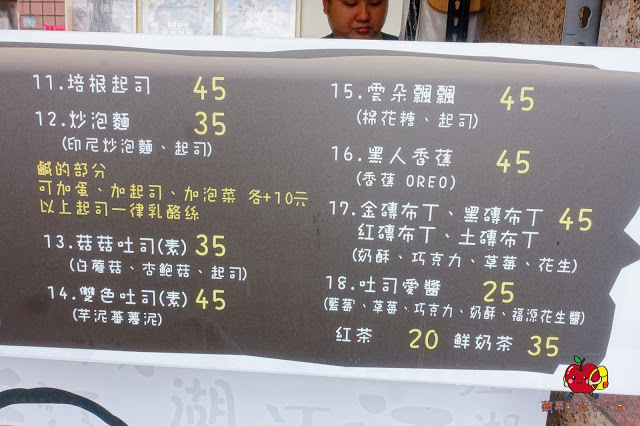 11.培根起司 45
12.炒泡麵 35
(印尼炒泡麵、起司)
鹹的部分
可加蛋、加起司、加泡菜 各+10元
以上起司一律乳酪絲
13.菇菇吐司(素) 35
(白蘑菇、杏鮑菇、起司)
14.雙色吐司(素) 45
(芋泥蕃薯泥)
15.雲朵飄飄 45
(棉花糖、起司)
16.黑人香蕉 45
(香蕉 OREO)
17.金磚布丁、黑磚布丁 45
紅磚布丁、土磚布丁
(奶酥、巧克力、草莓、花生)
18.吐司愛醬 25
(藍莓、草莓、巧克力、奶酥、福源花生醬)
紅茶 20 鮮奶茶 35
湖 江